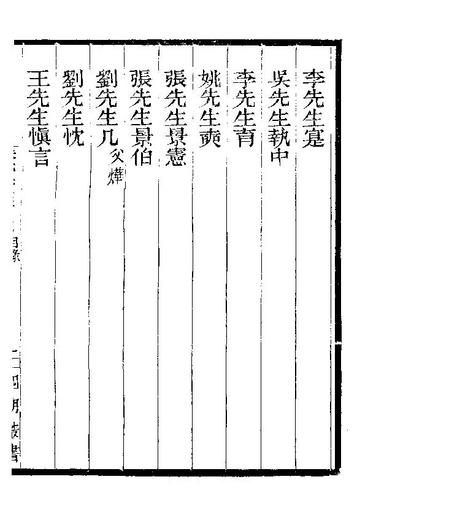 李先生寔
吳先生執中
李先生育
姚先生奭
張先生景憲
張先生景伯
劉先生几 父燁
劉先生忱
王先生愼言
四明叢書